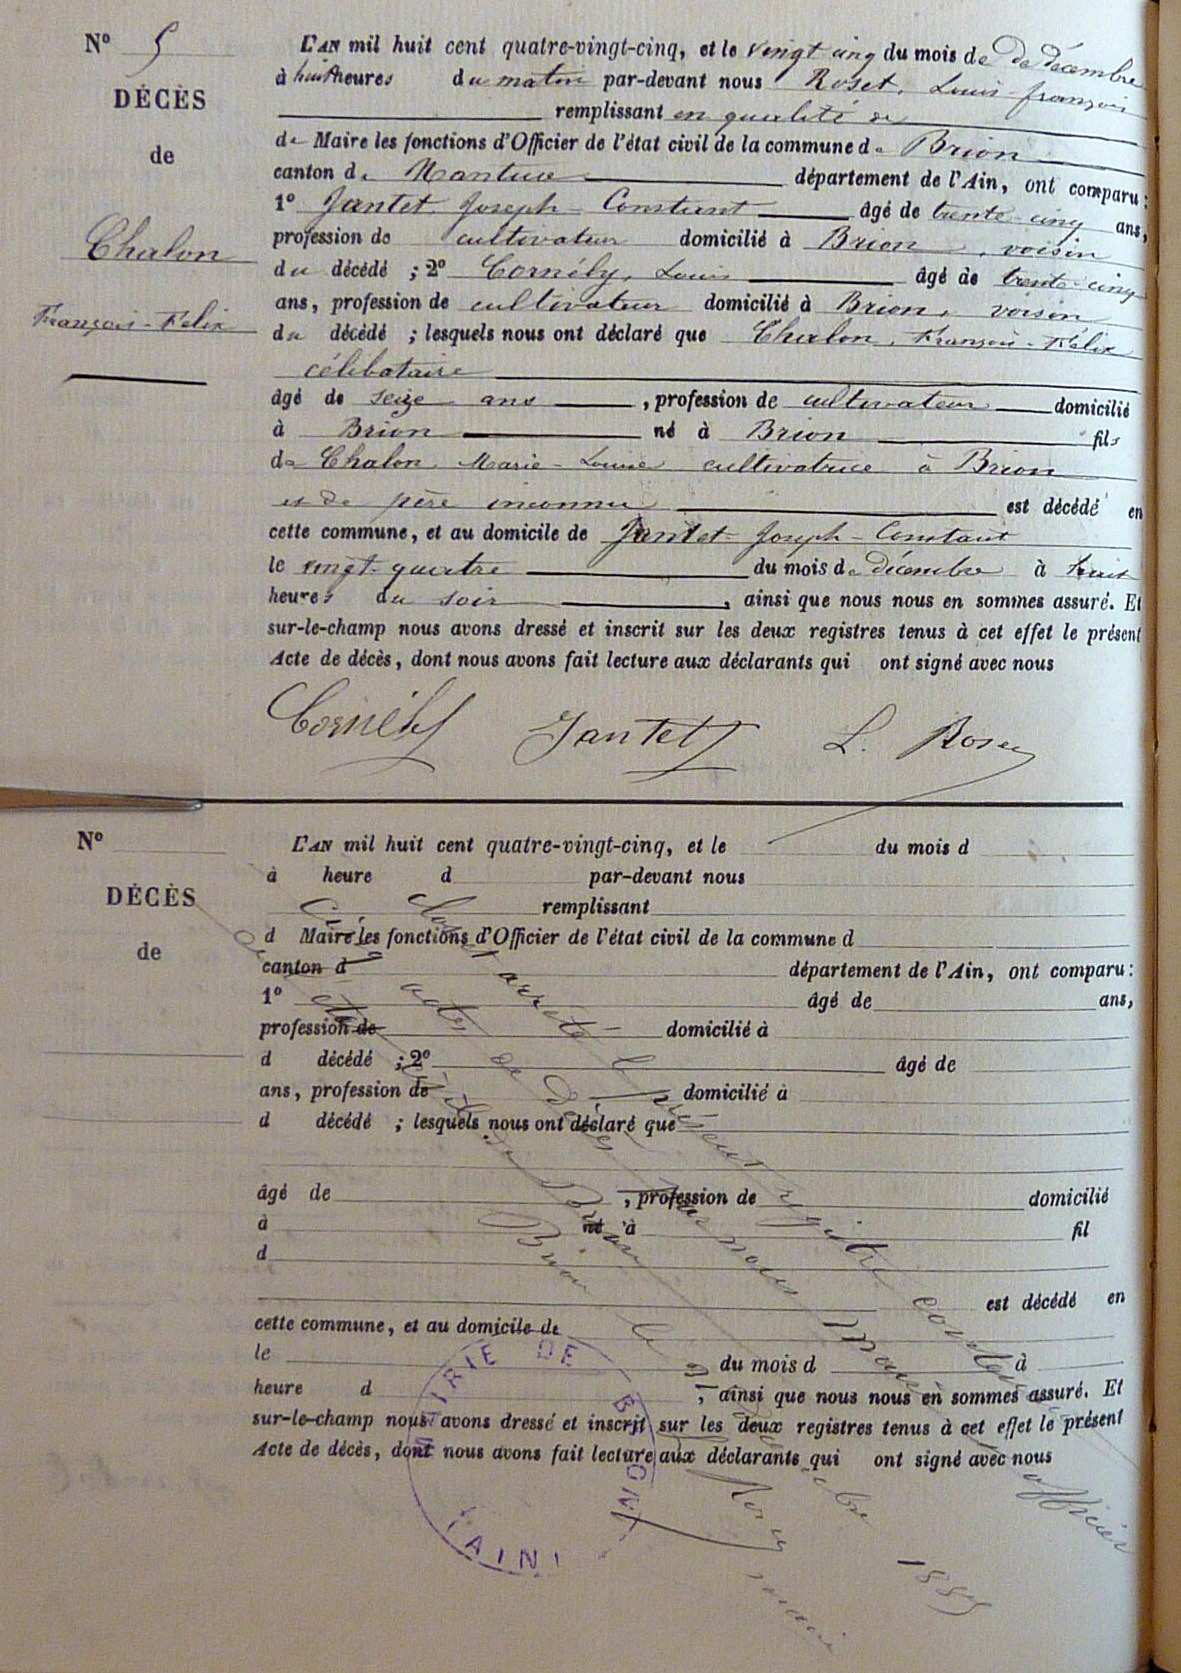 N° 5
DÉCÈS
de
Chalon
François-Félix
L'AN mil huit cent quatre-vingt-cinq, et le vingt cinq du mois de de décembre
à huit heures du matin par-devant nous Roset, Louis-françois
remplissant en qualité de
de Maire les fonctions d'Officier de l'état civil de la commune de Brion
canton de Nantua département de l'Ain, ont comparu :
1° Jantet Joseph-Constant âgé de trente-cinq ans,
profession de cultivateur domicilié à Brion, voisin
du décédé ; 2° Cornély, Louis âgé de trente-cinq
ans, profession de cultivateur domicilié à Brion, voisin
du décédé ; lesquels nous ont déclaré que Chalon, François-Félix
célibataire
âgé de seize ans , profession de cultivateur domicilié
à Brion né à Brion fils
de Chalon Marie-Louise cultivatrice à Brion
et de père inconnu est décédé en
cette commune, et au domicile de Jantet Joseph-Constant
le vingt-quatre du mois de décembre à huit
heures du soir , ainsi que nous nous en sommes assuré. Et
sur-le-champ nous avons dressé et inscrit sur les deux registres tenus à cet effet le présent
Acte de décès, dont nous avons fait lecture aux déclarants qui ont signé avec nous
Cornély Jantet L. Roset
N°
DÉCÈS
de
L'AN mil huit cent quatre-vingt-cinq, et le du mois d
à heure d par-devant nous
remplissant
d Maire les fonctions d'Officier de l'état civil de la commune d
canton d département de l'Ain, ont comparu :
1° âgé de ans,
profession de domicilié à
d décédé ; 2° âgé de
ans, profession de domicilié à
d décédé ; lesquels nous ont déclaré que
âgé de , profession de domicilié
à né à fil
d
est décédé en
cette commune, et au domicile de
le du mois d à
heure d , ainsi que nous nous en sommes assuré. Et
sur-le-champ nous avons dressé et inscrit sur les deux registres tenus à cet effet le présent
Acte de décès, dont nous avons fait lecture aux déclarants qui ont signé avec nous
arrêté le présent registre
actes de Décès par nous Maire officier
Brion le 1885
maire
MAIRIE DE BRION
(AIN)